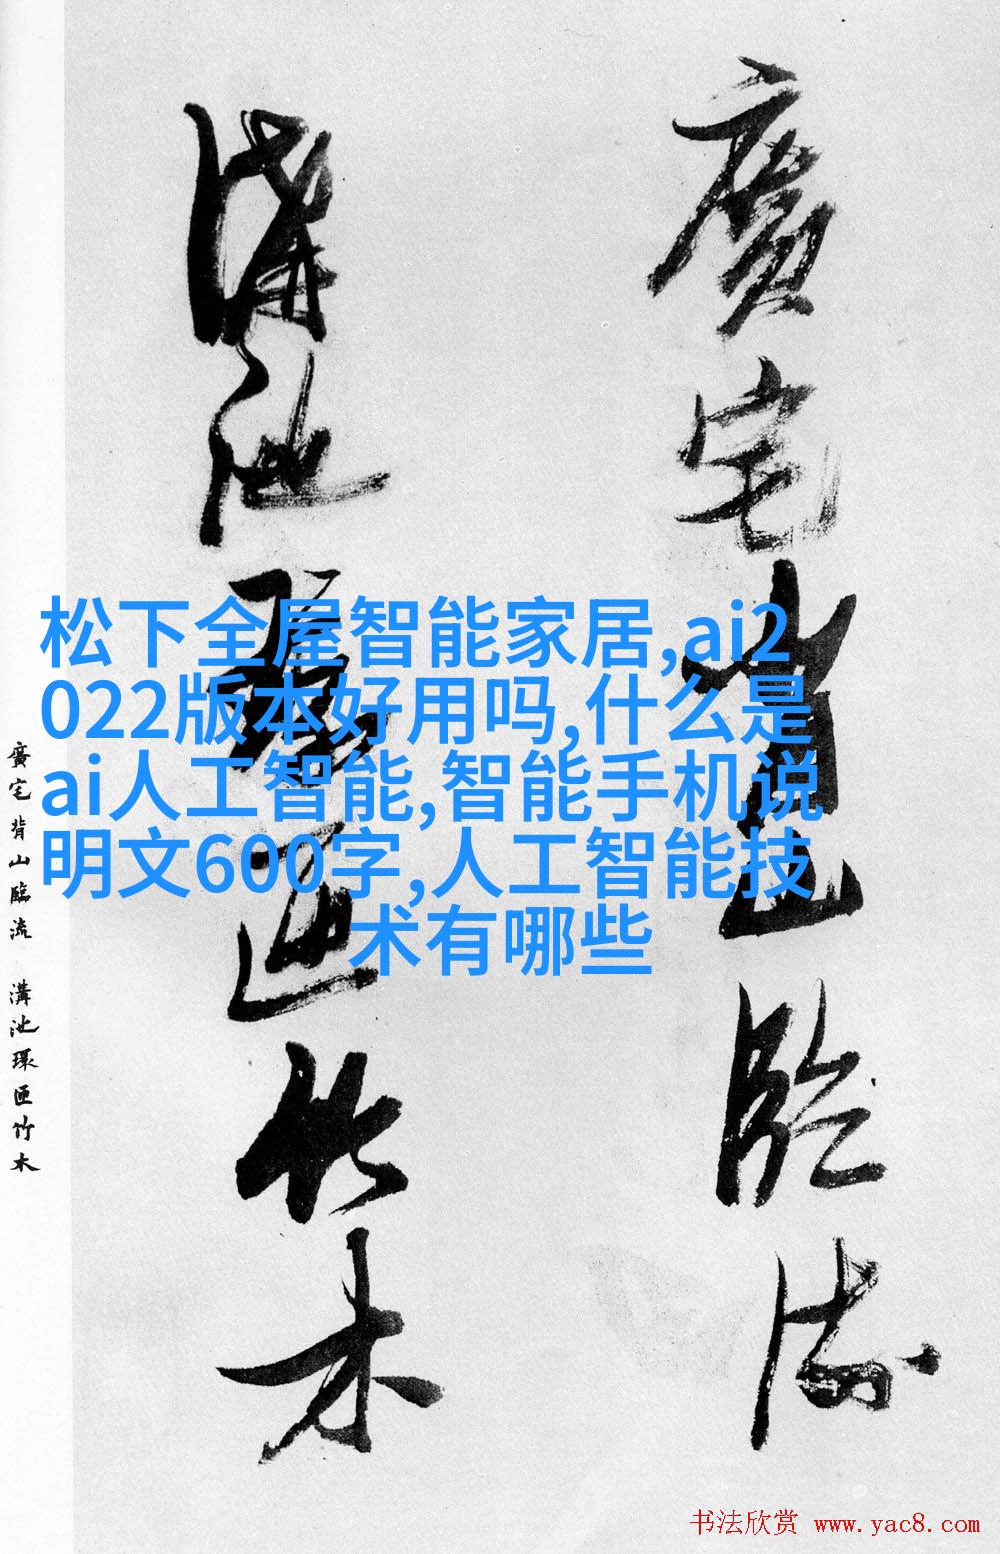 廣宅背山臨流
溝池環匝竹木
松下全屋智能家居,ai2
022版本好用吗,什么是
ai人工智能,智能手机说
明文600字,人工智能技
术有哪些
廣宅背山臨流 溝池環匝竹木
书法欣赏 www.yac8.com